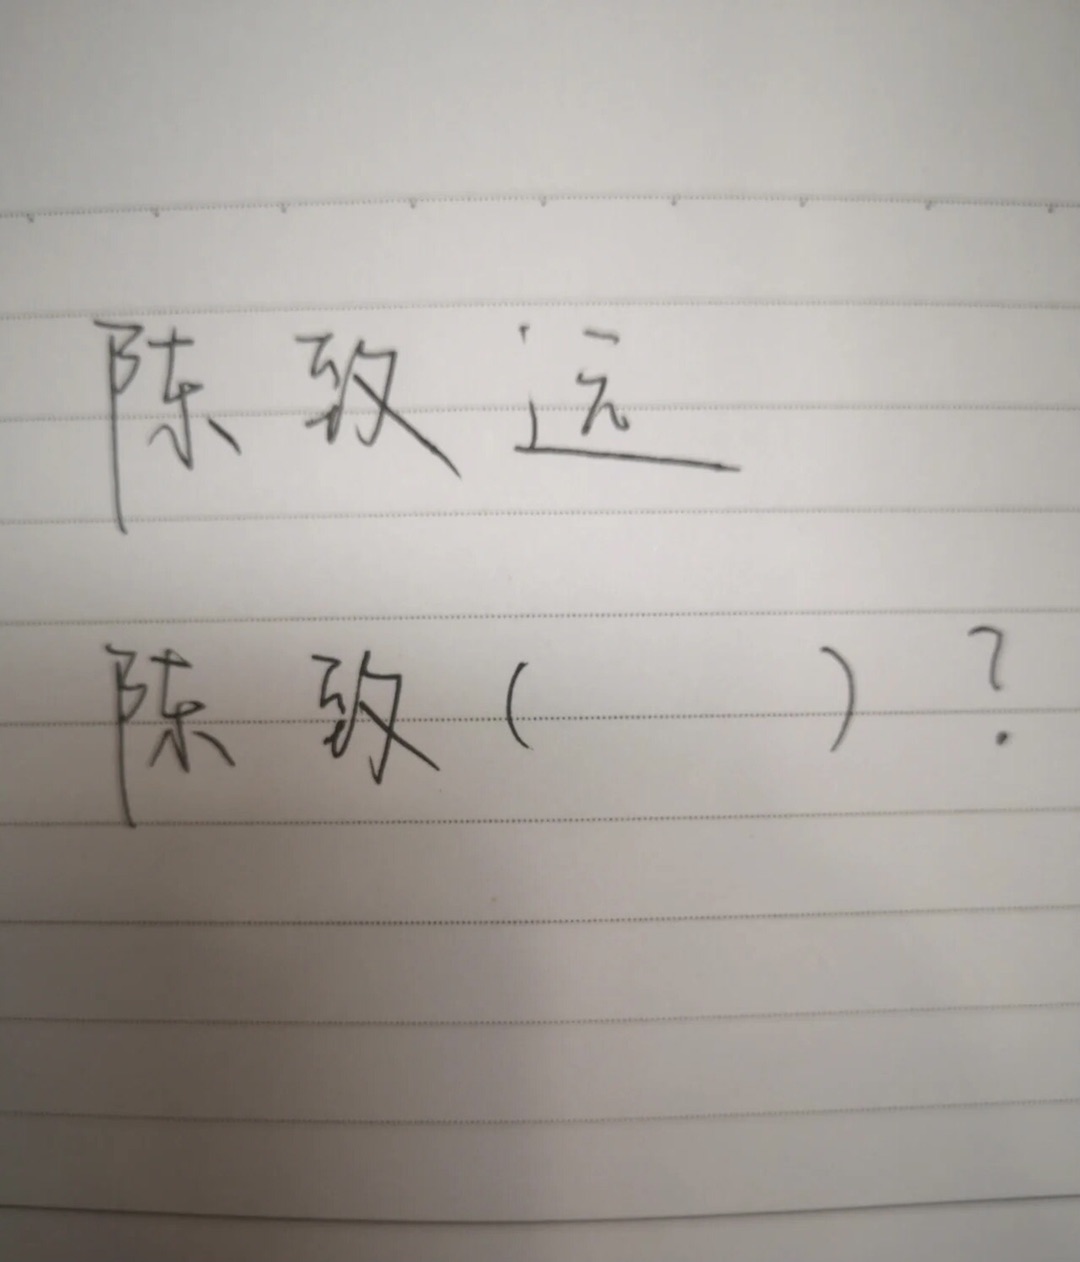 陈致远
陈致（ ）？